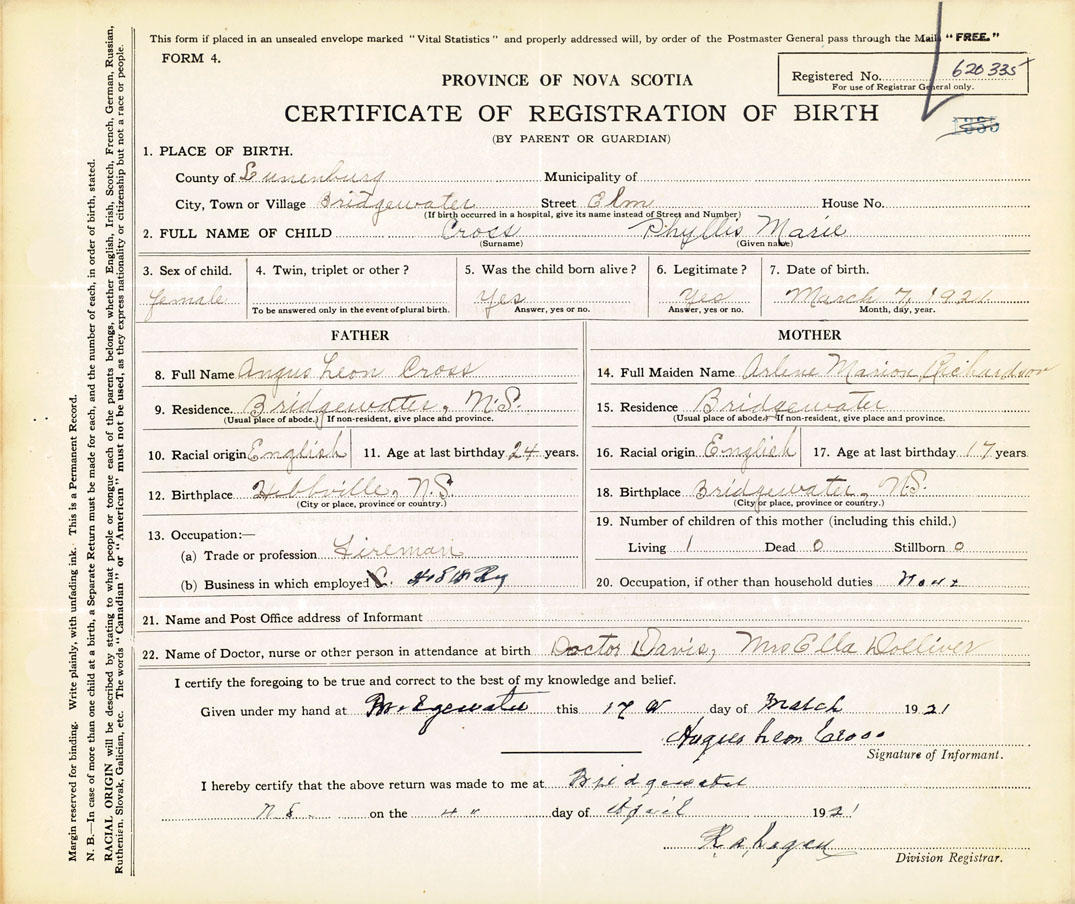 This form if placed in an unsealed envelope marked "Vital Statistics" and properly addressed will, by order of the Postmaster General pass through the Mails "FREE."
FORM 4.
Registered No. 620335
For use of Registrar General only.
PROVINCE OF NOVA SCOTIA
CERTIFICATE OF REGISTRATION OF BIRTH
(BY PARENT OR GUARDIAN)
1. PLACE OF BIRTH.
County of Lunenburg Municipality of
City, Town or Village Bridgewater Street Elm House No.
(If birth occurred in a hospital, give its name instead of Street and Number)
2. FULL NAME OF CHILD Cross Phyllis Marie
(Surname) (Given name)
3. Sex of child. 4. Twin, triplet or other? 5. Was the child born alive? 6. Legitimate? 7. Date of birth.
female Yes Yes March 7, 1921
To be answered only in the event of plural birth. Answer, yes or no. Answer, yes or no. Month, day, year.
FATHER MOTHER
8. Full Name Angus Leon Cross 14. Full Maiden Name Arlene Marion Richardson
9. Residence Bridgewater, N.S. 15. Residence Bridgewater
(Usual place of abode.) (If non-resident, give place and province. (Usual place of abode) (If non-resident, give place and province.
10. Racial origin English 11. Age at last birthday 24 years. 16. Racial origin English 17. Age at last birthday 17 years
12. Birthplace Hebbville, N.S. 18. Birthplace Bridgewater, N.S.
(City or place, province or country.) (City or place, province or country.)
13. Occupation:— 19. Number of children of this mother (including this child.)
(a) Trade or profession Fireman Living 1 Dead 0 Stillborn 0
(b) Business in which employed H & S W Ry 20. Occupation, if other than household duties None
21. Name and Post Office address of Informant
22. Name of Doctor, nurse or other person in attendance at birth Doctor Davis, Mrs Ella Dolliver
I certify the foregoing to be true and correct to the best of my knowledge and belief.
Given under my hand at Bridgewater this 17 day of March 1921
Angus Leon Cross
Signature of Informant.
I hereby certify that the above return was made to me at Bridgewater
N S. on the 4" day of April 1921
Division Registrar.
Margin reserved for binding. Write plainly, with unfading ink. This is a Permanent Record.
N. B.—In case of more than one child at a birth, a Separate Return must be made for each, and the number of each, in order of birth, stated.
RACIAL ORIGIN will be described by stating to what people or tongue each of the parents belongs, whether English, Irish, Scotch, French, German, Russian,
Ruthenien, Slovak, Galician, etc. The words "Canadian" or "American" must not be used, as they express nationality or citizenship but not a race or people.